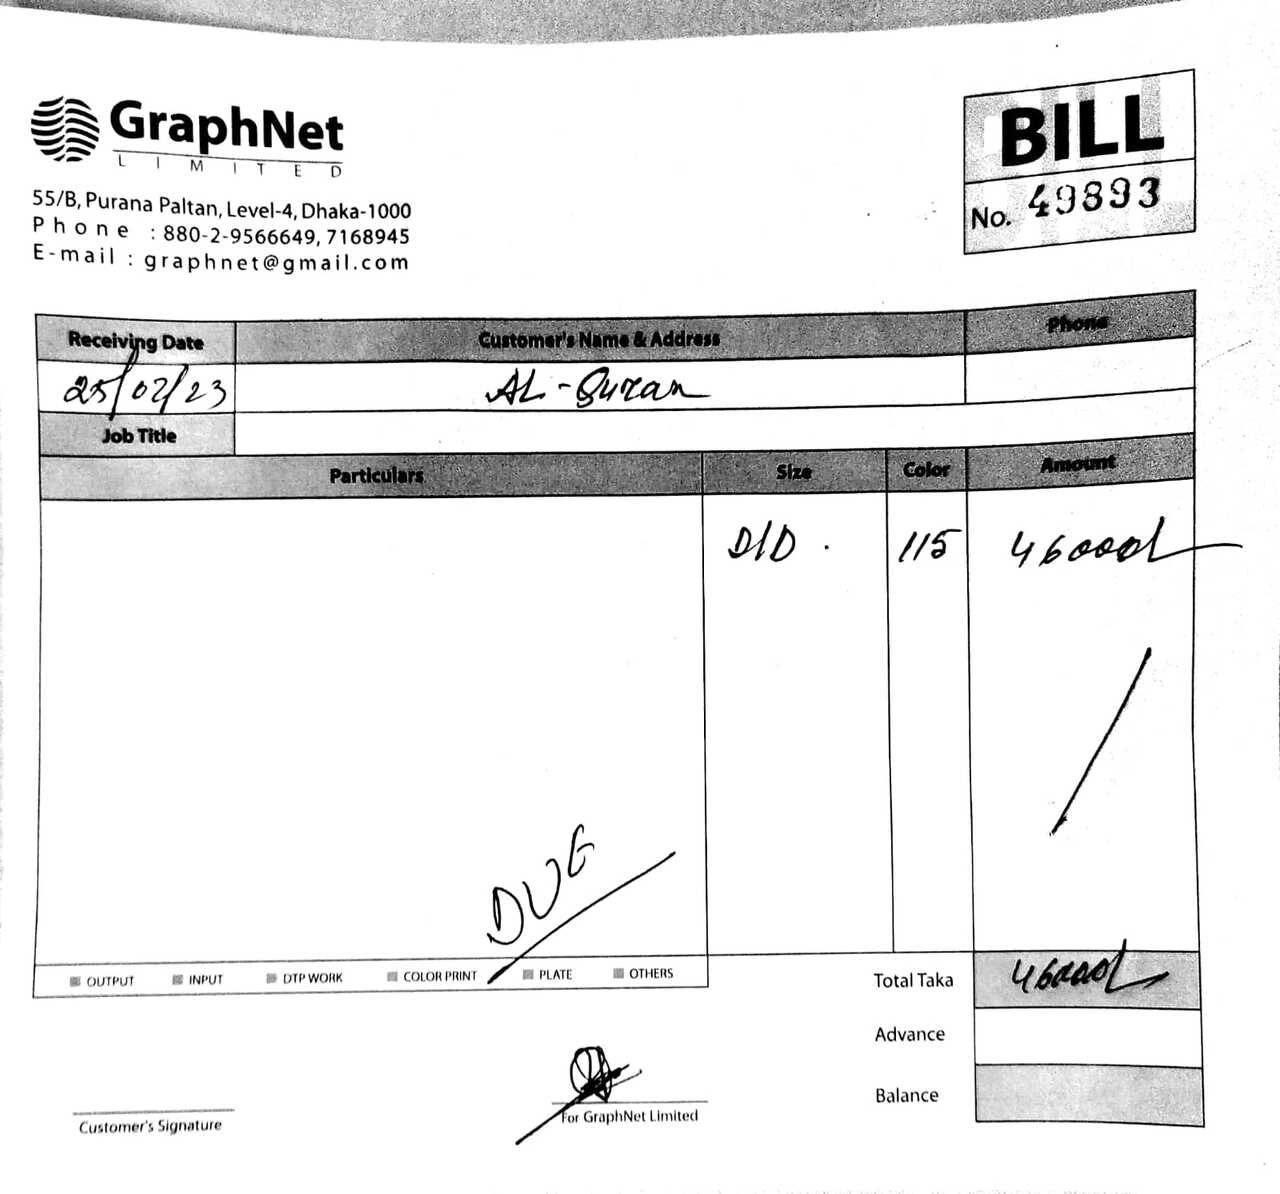 GraphNet
LIMITED
55/B, Purana Paltan, Level-4, Dhaka-1000
Phone : 880-2-9566649, 7168945
E-mail : graphnet@gmail.com
BILL
No. 49893
Receiving Date Customer's Name & Address Phone
25/02/23 AL-Quran
Job Title
Particulars Size Color Amount
D/D 115 46000/-
DUE
OUTPUT INPUT DTP WORK COLOR PRINT PLATE OTHERS
Total Taka 46000/-
Advance
Balance
Customer's Signature
For GraphNet Limited